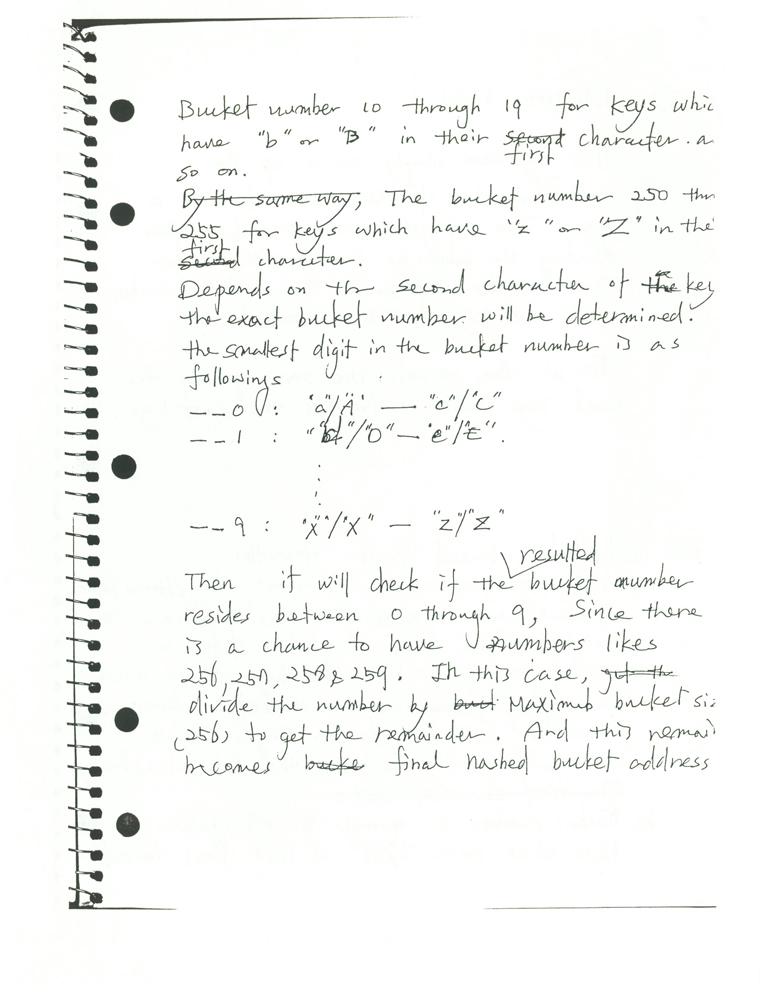 Bucket number 10 through 19 for keys whic
have "b" or "B" in their second character. a
first
so on.
By the same way, The bucket number 250 thr
255 for keys which have "z" or "Z" in the
first
second character.
Depends on th second character of the key
the exact bucket number will be determined.
the smallest digit in the bucket number is as
followings
--0 : "a"/"A" — "c"/"C"
--1 : "d"/"D" — "e"/"E".
--9 : "x"/"X" — "z"/"Z"
resulted
Then it will check if the bucket number
resides between 0 through 9, Since there
is a chance to have numbers likes
256, 257, 258 & 259. In this case, get the
divide the number by buct Maximub bucket siz
(256) to get the remainder. And this remai
becomes bucke final hashed bucket address